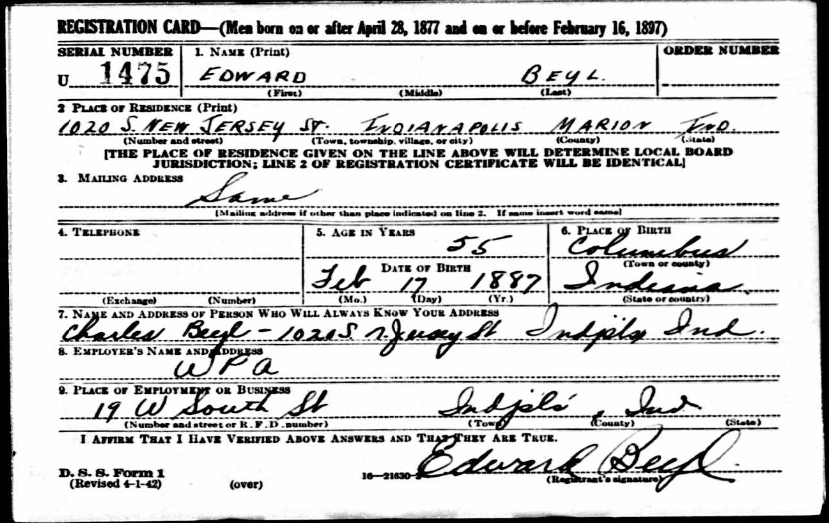 REGISTRATION CARD—(Men born on or after April 28, 1877 and on or before February 16, 1897)
SERIAL NUMBER 1. NAME (Print) ORDER NUMBER
U 1475 EDWARD BEYL
(First) (Middle) (Last)
2 PLACE OF RESIDENCE (Print)
1020 S. NEW JERSEY ST. INDIANAPOLIS MARION IND.
(Number and street) (Town, township, village, or city) (County) (State)
[THE PLACE OF RESIDENCE GIVEN ON THE LINE ABOVE WILL DETERMINE LOCAL BOARD
JURISDICTION; LINE 2 OF REGISTRATION CERTIFICATE WILL BE IDENTICAL]
3. MAILING ADDRESS
Same
[Mailing address if other than place indicated on line 2. If same insert word same]
4. TELEPHONE 5. AGE IN YEARS 6. PLACE OF BIRTH
55 Columbus
DATE OF BIRTH (Town or county)
Feb 17 1887 Indiana
(Exchange) (Number) (Mo.) (Day) (Yr.) (State or country)
7. NAME AND ADDRESS OF PERSON WHO WILL ALWAYS KNOW YOUR ADDRESS
Charles Beyl - 1020 S. n. Jersey St Indpls Ind.
8. EMPLOYER'S NAME AND ADDRESS
WPA
9. PLACE OF EMPLOYMENT OR BUSINESS
19 W South St Indpls, Ind
(Number and street or R. F. D. number) (Town) (County) (State)
I AFFIRM THAT I HAVE VERIFIED ABOVE ANSWERS AND THAT THEY ARE TRUE.
Edward Beyl
D. S. S. Form 1 16—21630 (Registrant's signature)
(Revised 4-1-42) (over)